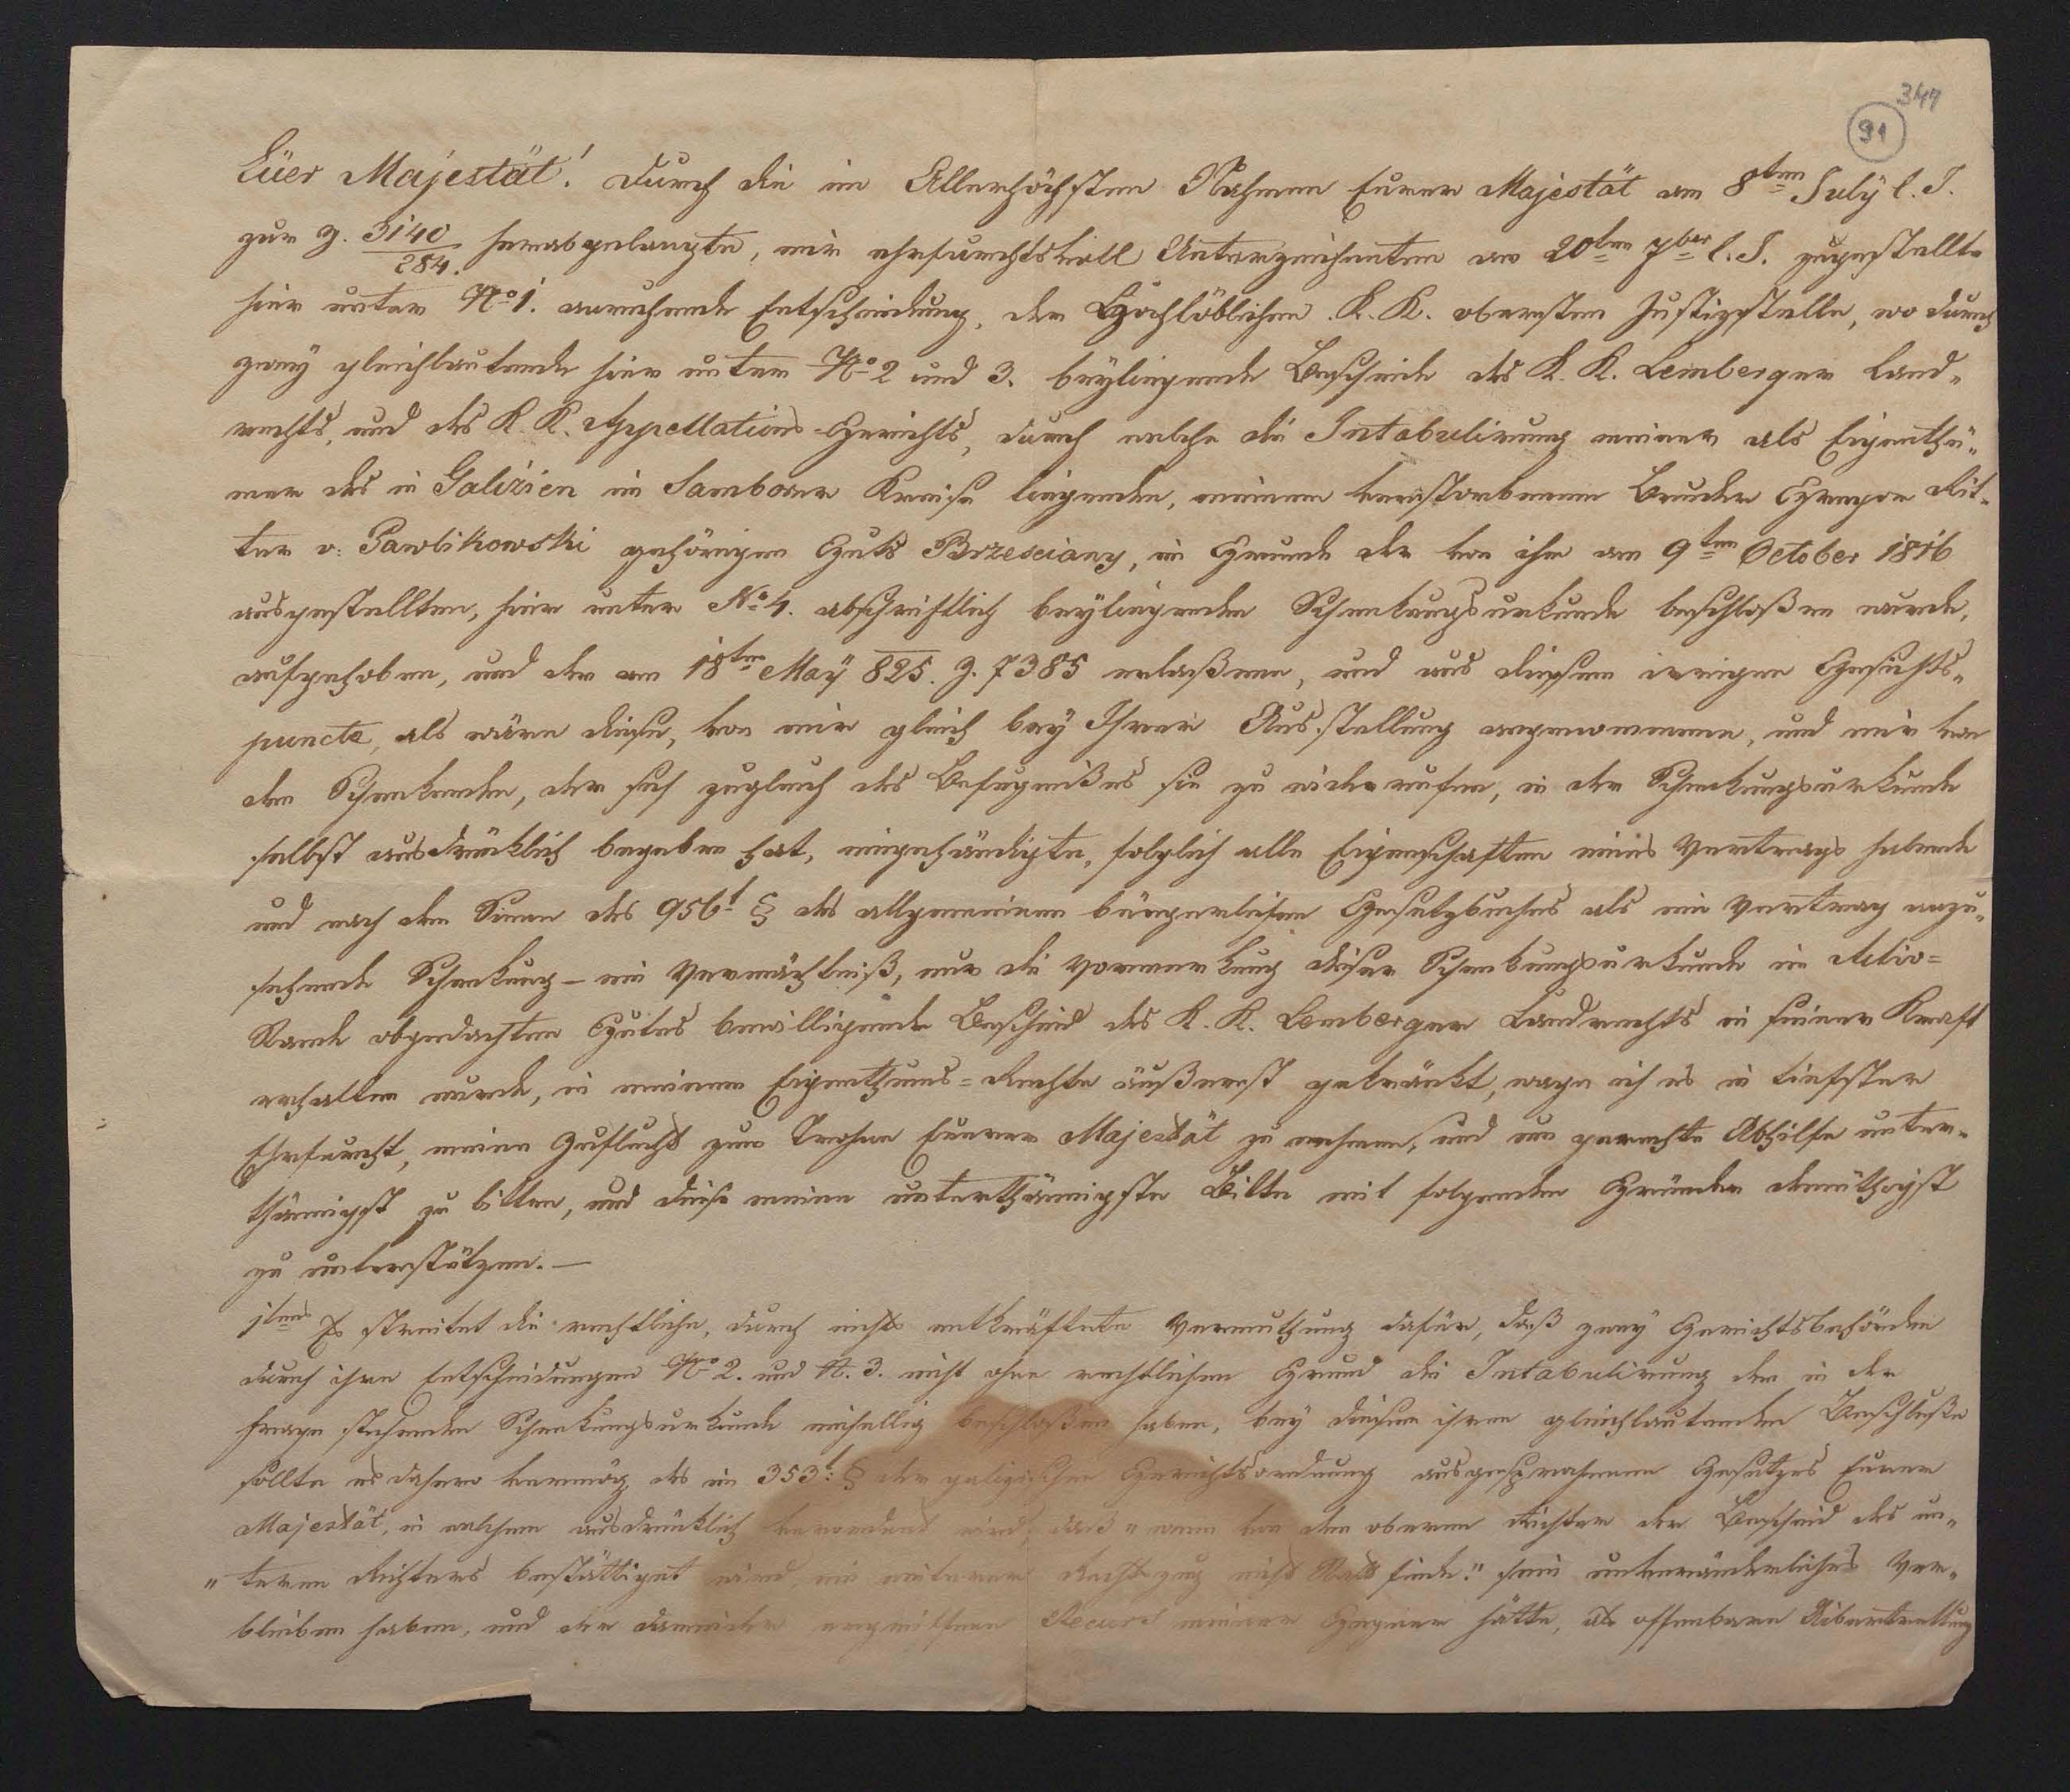 347
91
Eüer Majestät! Durch die im Allerhöchsten Nahmen Eurer Majestät am 8ten July l. J.
zur Z. 3140/284. herabgelangte, mir ehrfurchtsvoll Unterzeichneten am 20ten 7ber l. J. zugestellte
hier unter No 1. anruhende Entscheidung, der Hochlöblichen K. K. obersten Justizstelle, wo durch
zwey gleichlautende hier unter No 2 und 3. beyliegende Bescheide des K. K. Lemberger Land„
rechts, und des K. K. Appellations-Gerichts, durch welche die Intabulirung meiner als Eigenthü„
mer des in Galizien im Samborer Kreise liegenden, meinem verstorbenen Bruder Rit„
ter v: Pawlikowski gehörigen Guts Brzesciany, im Grunde der von ihm am 9ten October 1816
ausgestellten, hier unter No 4. abschriftlich beyliegenden Schenkungsurkunde beschloßen wurde,
aufgehoben, und der am 18ten Maÿ 825. Z. 7385 erlaßene, und aus diesem irrigen Gesichts„
puncte, als wäre diese, von mir gleich bey Ihrer Ausstellung angenommene, und mir von
dem Schenkenden, der sich zugleich des Befugnißes sie zu widerrufen, in der Schenkungsurkunde
selbst ausdrücklich begeben hat, eingehändigte, folglich alle Eigenschaften eines Vertrags habende
und nach dem Sinne des 956t § des allgemeinen bürgerlichen Gesetzbuches als ein Vertrag anzu„
sehende Schenkung – ein Vermächtniß, nur die Vormerkung dieser Schenkungsurkunde im Activ=
Stande obgedachten Gutes bewilligende Bescheid des K. K. Lemberger Landrechts in seiner Kraft
erhalten wurde, in meinem Eigenthums=Rechte äußerst gekränkt, wage ich es in tiefster
Ehrfurcht, meine Zuflucht zum Trohne Eurer Majestät zu nehmen, und um gerechte Abhilfe unter„
thänigst zu bitten, und diese meine unterthänigste Bitte mit folgenden Gründen demüthigst
zu unterstützen. —
1tens Es streitet die rechtliche, durch nichts entkräftete Vermuthung dafür, daß zwey Gerichtsbehörden
durch ihre Entscheidungen No 2. und N. 3. nicht ohne rechtlichen Grund die Intabulirung der in der
Frage stehenden Schenkungsurkunde einhellig beschloßen haben, bey diesem ihren gleichlautenden Beschluße
sollte es daher vermög des im 353t: § der galizischen Gerichtsordnung ausgesprochenen Gesetzes Eurer
Majestät, in welchem ausdrücklich verordnet wird, daß „wenn von dem oberen Richter der Bescheid des un„
„teren Richters bestättiget wird, ein weiterer Rechtszug nicht Statt finde." sein unveränderliches Ver„
bleiben haben, und der dawider ergriffene Recurs meiner Gegner hätte, als offenbare Uibertrettung